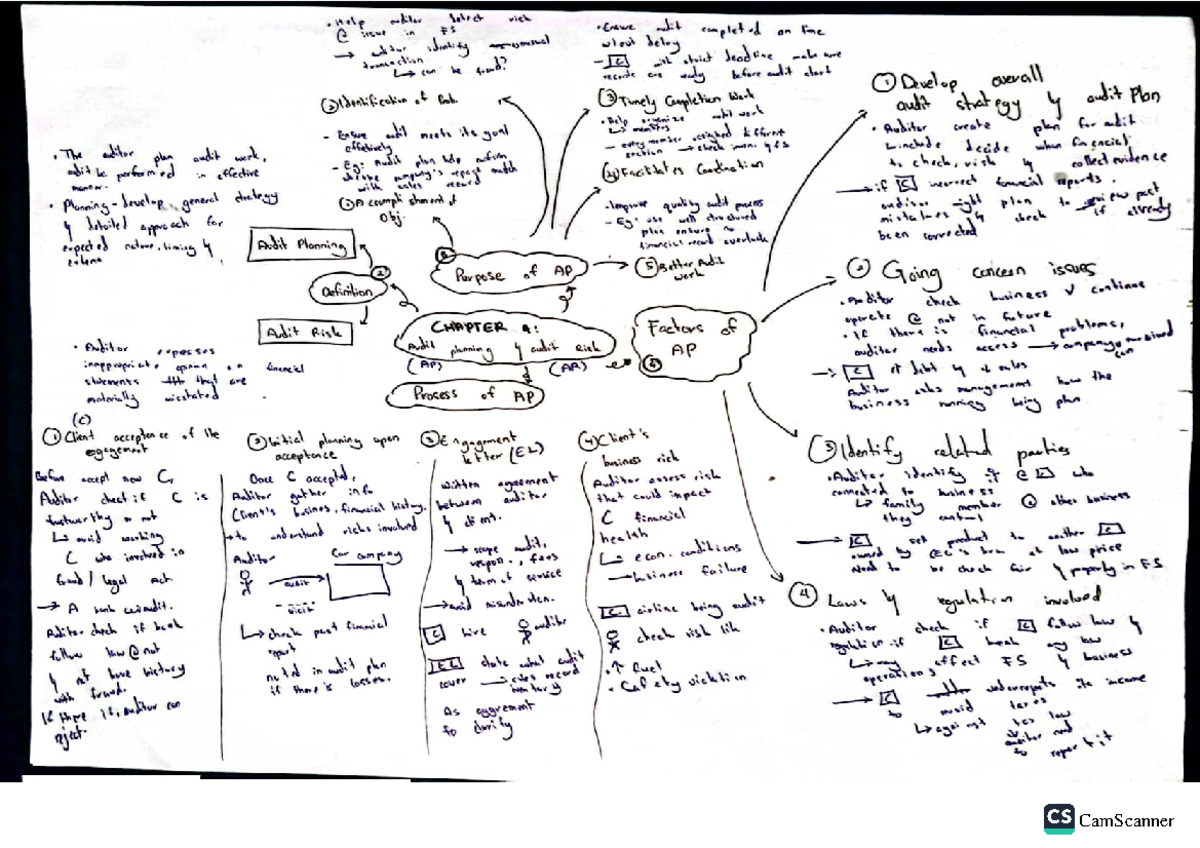 CHAPTER 4:
Audit planning & audit Risk
(AP) (AR)
Definition
Audit Planning
• The auditor plan audit work,
audit be performed in effective
manner.
• Planning - develop general strategy
& detailed approach for
expected nature, timing &
Audit Risk
• Auditor expresses
inappropriate opinion on financial
statements that they are
materially misstated
Purpose of AP
① Accomplishment of
Obj.
- Ensure audit meets its goal
effectively
- Eg: Audit plan help
company's report match
with sales record
② Identification of Prob.
• Help auditor detect risk
@ issue in FS
→ auditor identify unusual
transaction
↳ can be fraud?
③ Timely Completion Work
• Help organize audit work
- every member assigned different
section → check inven. & FS
• Ensure audit completed on time
w/out delay
- C with strict deadline make sure
records are ready before audit start
④ Facilitates Coordination
- Improve quality audit process
- Eg: use well structured
plan ensure no
financial record overlook
⑤ Better Audit
Work
Factors of
AP
① Develop overall
audit strategy & audit plan
• Auditor create plan for audit
↳ include decide when financial
to check, risk & collect evidence
→ if C incorrect financial reports.
auditor might plan to review past
mistakes & check if already
been corrected
② Going concern issues
• Auditor check business continue
operate @ not in future
• If there is financial problems,
auditor needs access → company
can
→ C debt & sales
Auditor asks management how the
business running being plan
③ Identify related parties
• Auditor identify if @ C who
connected to business
↳ family member @ other business
they control
→ C product to another C
owned by CEO's bro. at low price
need to be check fair & properly in FS
④ Laws & regulation involved
• Auditor check if C follow law &
regulation. if C break any law
↳ may effect FS & business
operations
→ C underreports its income
to avoid taxes
↳ against tax law
auditor need
to report it
Process of AP
(C)
① Client acceptance of the
engagement
Before accept new C,
Auditor check if C is
trustworthy or not
↳ avoid working
C who involved in
fraud / legal act.
→ A bank audit.
Auditor check if bank
follow law @ not
& not have history
with fraud.
If there is, auditor can
reject.
② Initial planning upon
acceptance
Once C accepted,
Auditor gather info
Client's business, financial history.
→ to understand risks involved
Auditor Car company
audit
visit
↳ check past financial
report
noted in audit plan
if there is losses.
③ Engagement
letter (EL)
Written agreement
between auditor
& client.
→ scope audit,
respon., fees
& term of service
→ avoid misunderstan.
C hire auditor
EL state what audit
cover → sales record
inventory
As aggrement
to clarify
④ Client's
business risk
Auditor assess risk
that could impact
C financial
health
↳ econ. conditions
→ business failure
C airline being audit
check risk lik
↑ fuel
• Safety violation
CS CamScanner